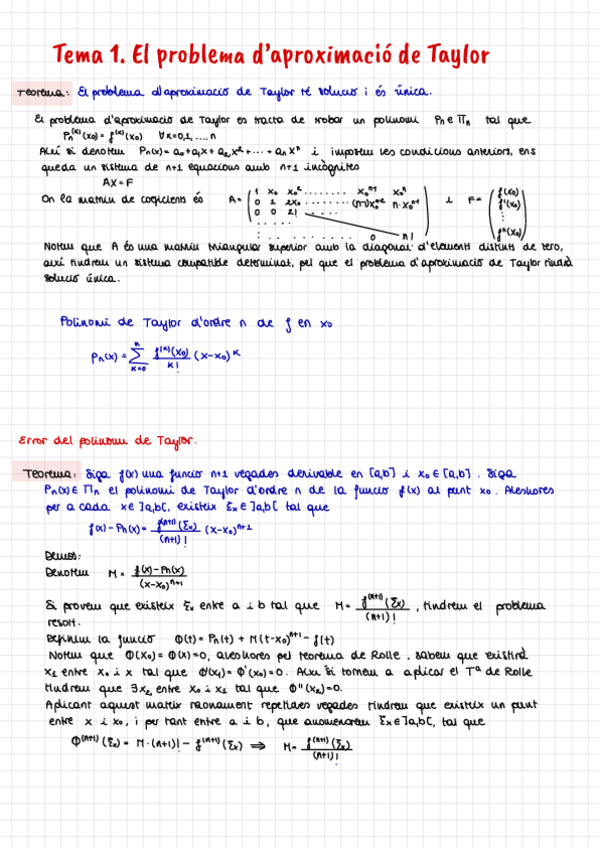 Tema 1. El problema d'aproximació de Taylor
Teorema: El problema d'aproximació de Taylor té solució i és única.
El problema d'aproximació de Taylor es tracta de trobar un polinomi Pn ∈ Πn tal que
Pn^(k)(x0) = f^(k)(x0) ∀k=0,1,....n
Així si denotem Pn(x) = a0+a1x+a2x²+···+anx^n i imposem les condicions anteriors, ens
queda un sistema de n+1 equacions amb n+1 incògnites
AX=F
On la matriu de coeficients és A= ( 1 x0 x0² ........ x0^(n-1) x0^n i F= ( f(x0)
0 1 2x0 ........ (n-1)x0^(n-2) n·x0^(n-1) f'(x0)
0 0 2! ....
0 n! ) f^n(x0) )
Notem que A és una matriu triangular superior amb la diagonal d'elements distints de zero,
així tindrem un sistema compatible determinat, pel que el problema d'aproximació de Taylor tindrà
solució única.
Polinomi de Taylor d'ordre n de f en x0
Pn(x) = Σ_{k=0}^{n} f^(k)(x0)/k! (x-x0)^k
Error del polinomi de Taylor.
Teorema: Siga f(x) una funció n+1 vegades derivable en [a,b] i x0 ∈ [a,b]. Siga
Pn(x) ∈ Πn el polinomi de Taylor d'ordre n de la funció f(x) al punt x0. Aleshores
per a cada x ∈ ]a,b[, existeix ξx ∈ ]a,b[ tal que
f(x) - Pn(x) = f^(n+1)(ξx)/(n+1)! (x-x0)^(n+1)
Demos:
Denotem M = f(x)-Pn(x)/(x-x0)^(n+1)
Si provem que existeix ξx entre a i b tal que M = f^(n+1)(ξx)/(n+1)!, tindrem el problema
resolt.
Definim la funció Φ(t) = Pn(t) + M(t-x0)^(n+1) - f(t)
Notem que Φ(x0) = Φ(x)=0, aleshores pel teorema de Rolle, sabem que existirà
x1 entre x0 i x tal que Φ'(x1) = Φ'(x0)=0. Així si tornem a aplicar el Tª de Rolle
tindrem que ∃x2 entre x0 i x1 tal que Φ''(x2)=0.
Aplicant aquest mateix raonament repetides vegades tindrem que existeix un punt
entre x i x0, i per tant entre a i b, que anomenarem ξx ∈ ]a,b[, tal que
Φ^(n+1)(ξx) = M·(n+1)! - f^(n+1)(ξx) ⟹ M = f^(n+1)(ξx)/(n+1)!